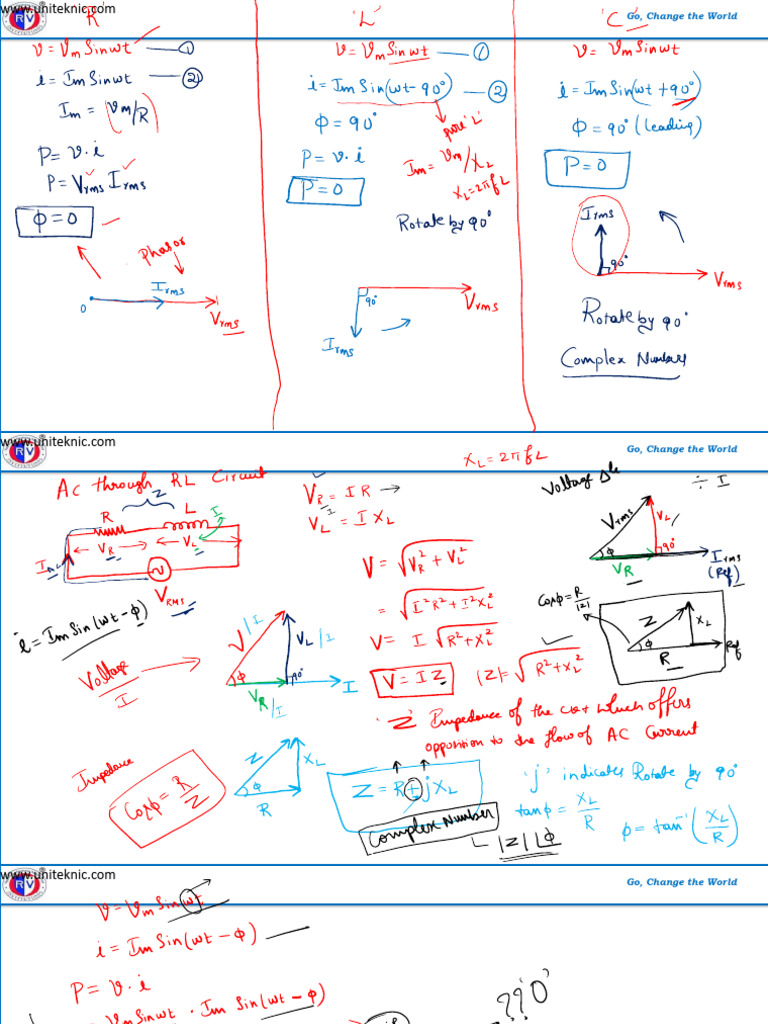 www.uniteknic.com
RV
Go, Change the World
R
v = Vm Sinωt — ①
i = Im Sinωt — ②
Im = (Vm/R)
P = v·i
P = Vrms Irms
ϕ = 0
Phasor
0
Irms
Vrms
'L'
v = Vm Sinωt — ①
i = Im Sin(ωt - 90°) — ②
ϕ = 90°
pure 'L'
P = v·i
Im = Vm/XL
XL = 2πfL
P = 0
Rotate by 90°
90°
Vrms
Irms
'C'
v = Vm Sinωt
i = Im Sin(ωt + 90°)
ϕ = 90° (leading)
P = 0
Irms
90°
Vrms
Rotate by 90°
Complex Numbers
www.uniteknic.com
RV
Go, Change the World
XL = 2πfL
AC through RL Circuit
Z
R
L
I
VR
VL
I
V
VRMS
i = Im Sin(ωt - ϕ)
VR = IR →
I
VL = I XL
V = √VR² + VL²
= √I²R² + I²XL²
V = I √R² + XL²
V = I Z
|Z| = √R² + XL²
Voltage Δle
÷ I
Vrms
VL
ϕ
90°
VR
Irms
(Ref)
Cosϕ = R/|Z|
Z
XL
ϕ
R
Ref
Voltage
I
V/I
VL/I
ϕ
90°
I
VR/I
'Z' Impedance of the ckt which offers
opposition to the flow of AC Current
Impedance
Cosϕ = R/Z
Z
XL
ϕ
R
Z = R + jXL
Complex Number
|Z| ∠ϕ
'j' indicates Rotate by 90°
tanϕ = XL/R
ϕ = tan⁻¹ (XL/R)
www.uniteknic.com
RV
Go, Change the World
v = Vm Sinωt
i = Im Sin(ωt - ϕ)
P = v·i
= Vm Sinωt · Im Sin(ωt - ϕ)